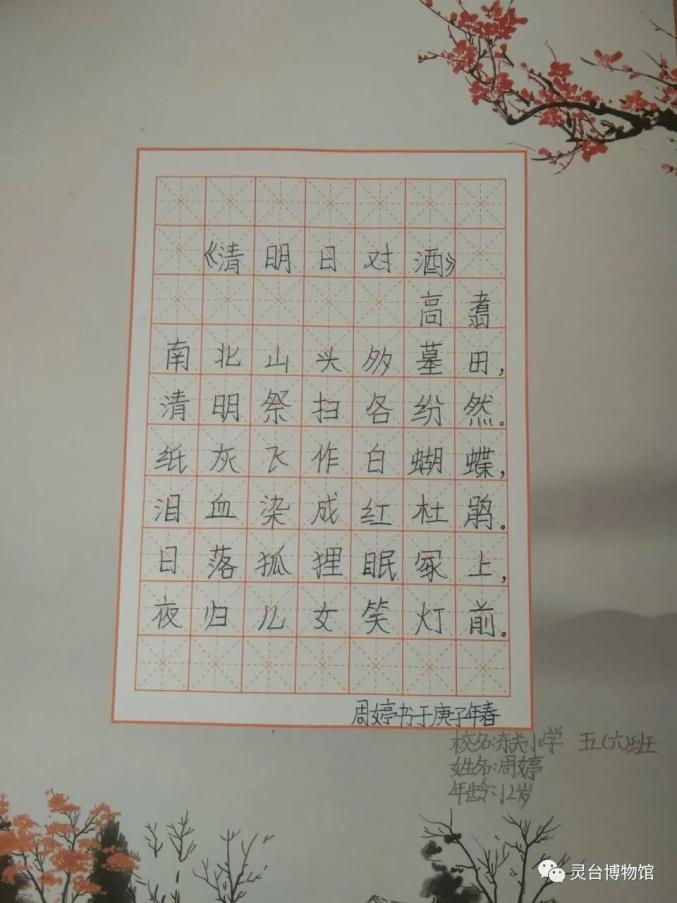 《清明日对酒》
高翥
南北山头多墓田，
清明祭扫各纷然。
纸灰飞作白蝴蝶，
泪血染成红杜鹃。
日落狐狸眠冢上，
夜归儿女笑灯前。
周婷书于庚子年春
校名:东关小学 五(六)班
姓名:周婷
年龄:12岁
灵台博物馆